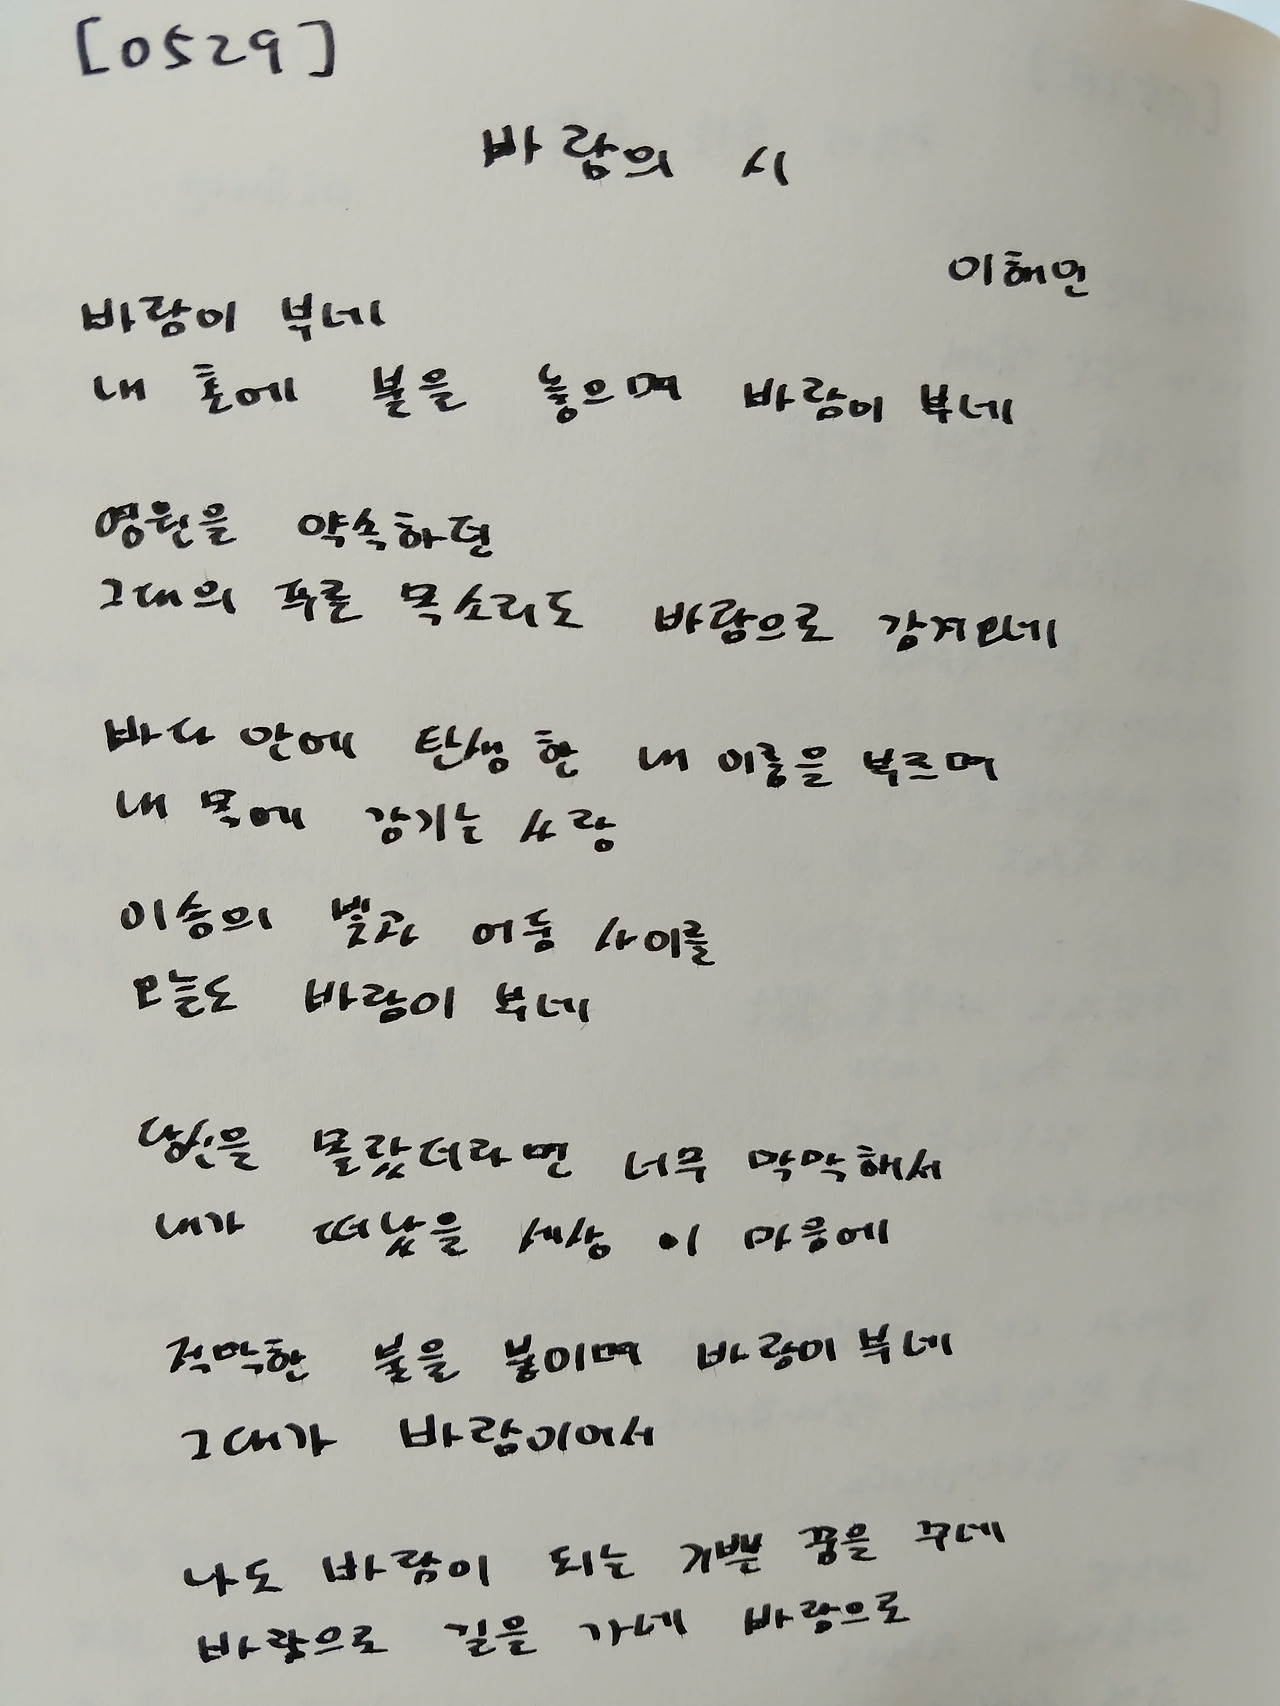 [0529]
바람의 시
이해인
바람이 부네
내 혼에 불을 놓으며 바람이 부네
영원을 약속하던
그대의 푸른 목소리도 바람으로 감겨오네
바다 안에 탄생한 내 이름을 부르며
내 목에 감기는 사랑
이승의 빛과 어둠 사이를
오늘도 바람이 부네
당신을 몰랐더라면 너무 막막해서
내가 떠났을 세상 이 마음에
적막한 불을 붙이며 바람이 부네
그대가 바람이어서
나도 바람이 되는 기쁨 꿈을 꾸네
바람으로 길을 가네 바람으로